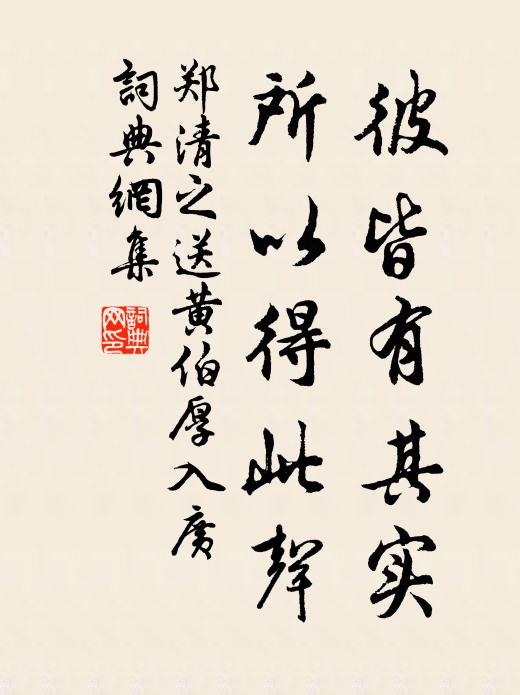 彼皆有其实
所以得此聲
郑清之送黄伯厚入廣
詞典網集
詞典网印